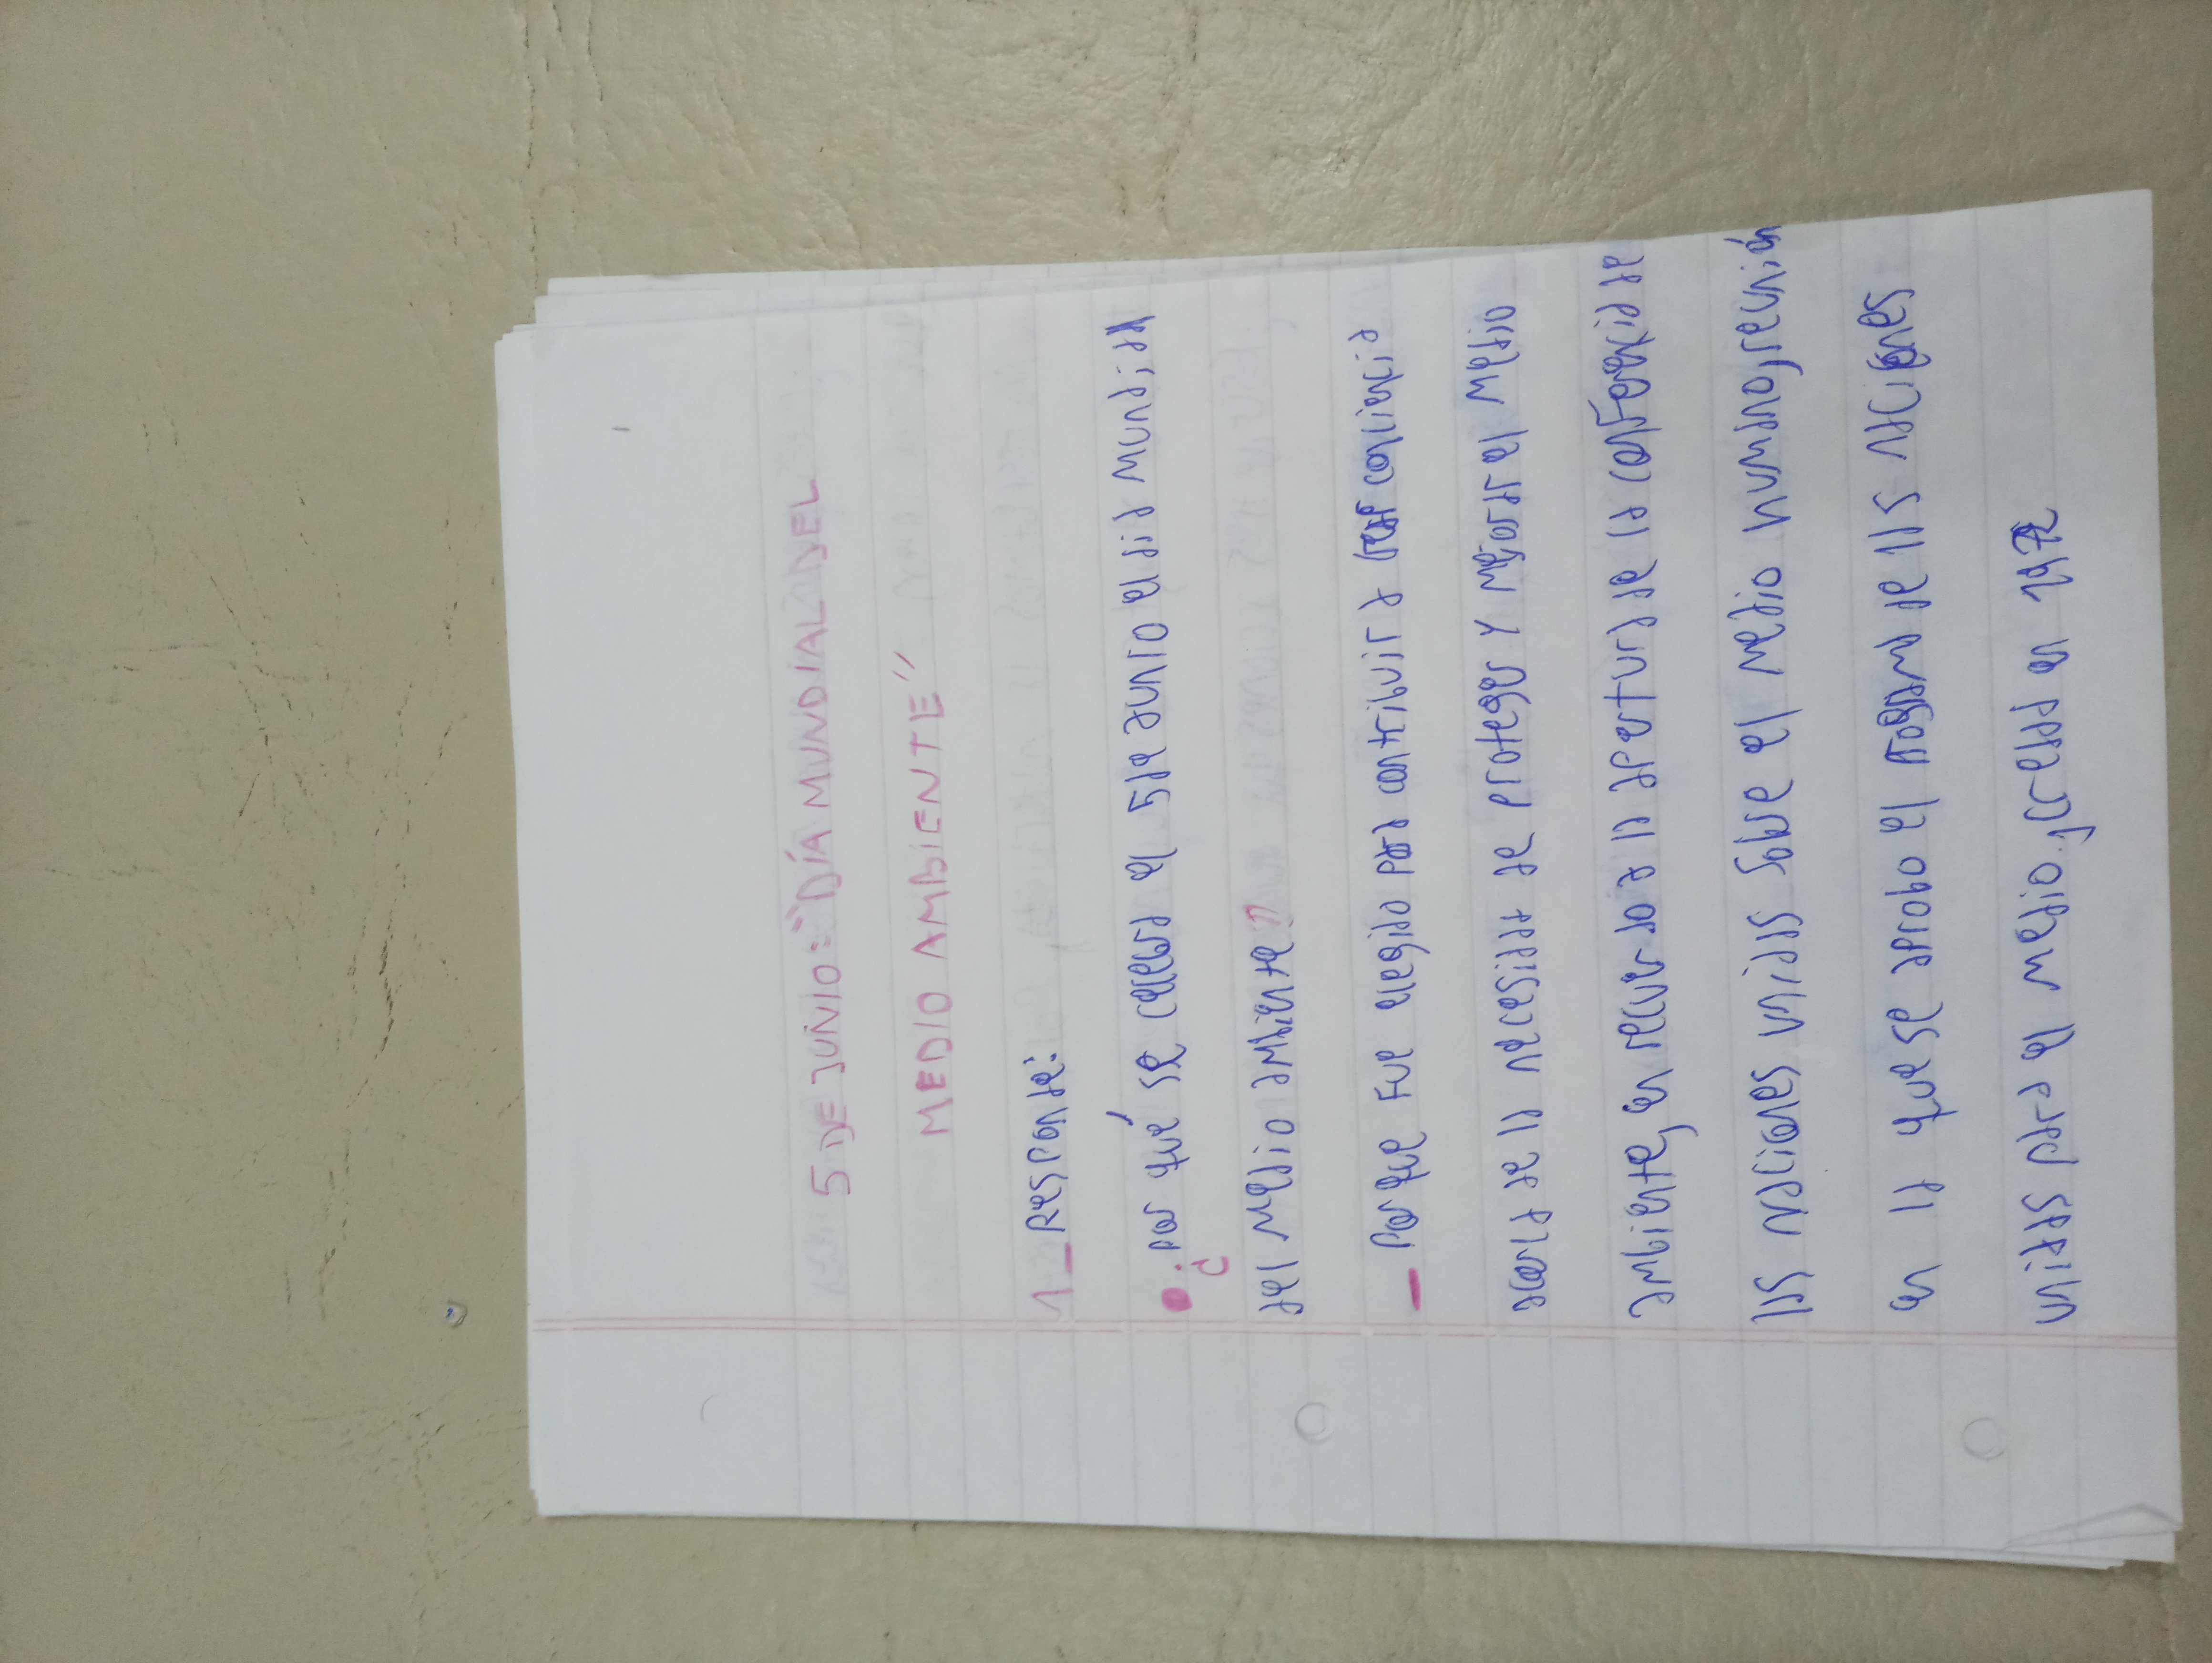 5 DE JUNIO: "DÍA MUNDIAL DEL
MEDIO AMBIENTE"
1_ Responde:
• ¿Por qué se celebra el 5 de Junio el día mundial
del medio ambiente?
_ Porque fue elegido para contribuir a
sobre la necesidad de proteger y mejorar el medio
ambiente en recuerdo a la apertura de la de
las naciones unidas sobre el medio humano
en la que se aprobo el programa de las naciones
unidas para el medio en 1972